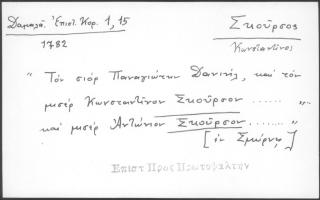 Δαμαλᾶ. Ἐπιστ. Κορ. 1, 15
Σκοῦρσος
Κωνσταντῖνος
1782
" Τὸν σιὸρ Παναγιώτην Δανιήλ, καὶ τὸν
μισὲρ Κωνσταντῖνον Σκοῦρσον ...... "
" καὶ μισὲρ Ἀντώνιον Σκοῦρσον ...... "
[ἐν Σμύρνῃ]
Επιστ Προς Πρωτοψαλτην